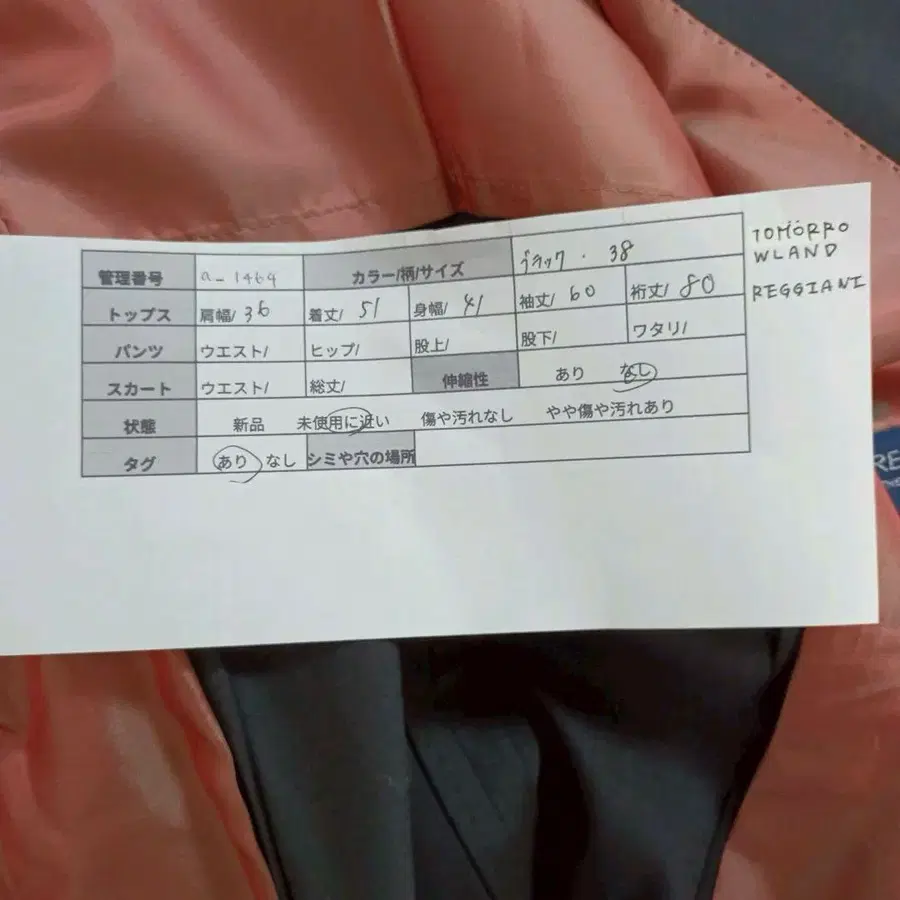 管理番号 a-1464 カラー/柄/サイズ ブラック・38
トップス 肩幅/36 着丈/51 身幅/41 袖丈/60 裄丈/80
パンツ ウエスト/ ヒップ/ 股上/ 股下/ ワタリ/
スカート ウエスト/ 総丈/ 伸縮性 あり なし
状態 新品 未使用に近い 傷や汚れなし やや傷や汚れあり
タグ あり なし シミや穴の場所
TOMORRO
WLAND
REGGIANI
RE